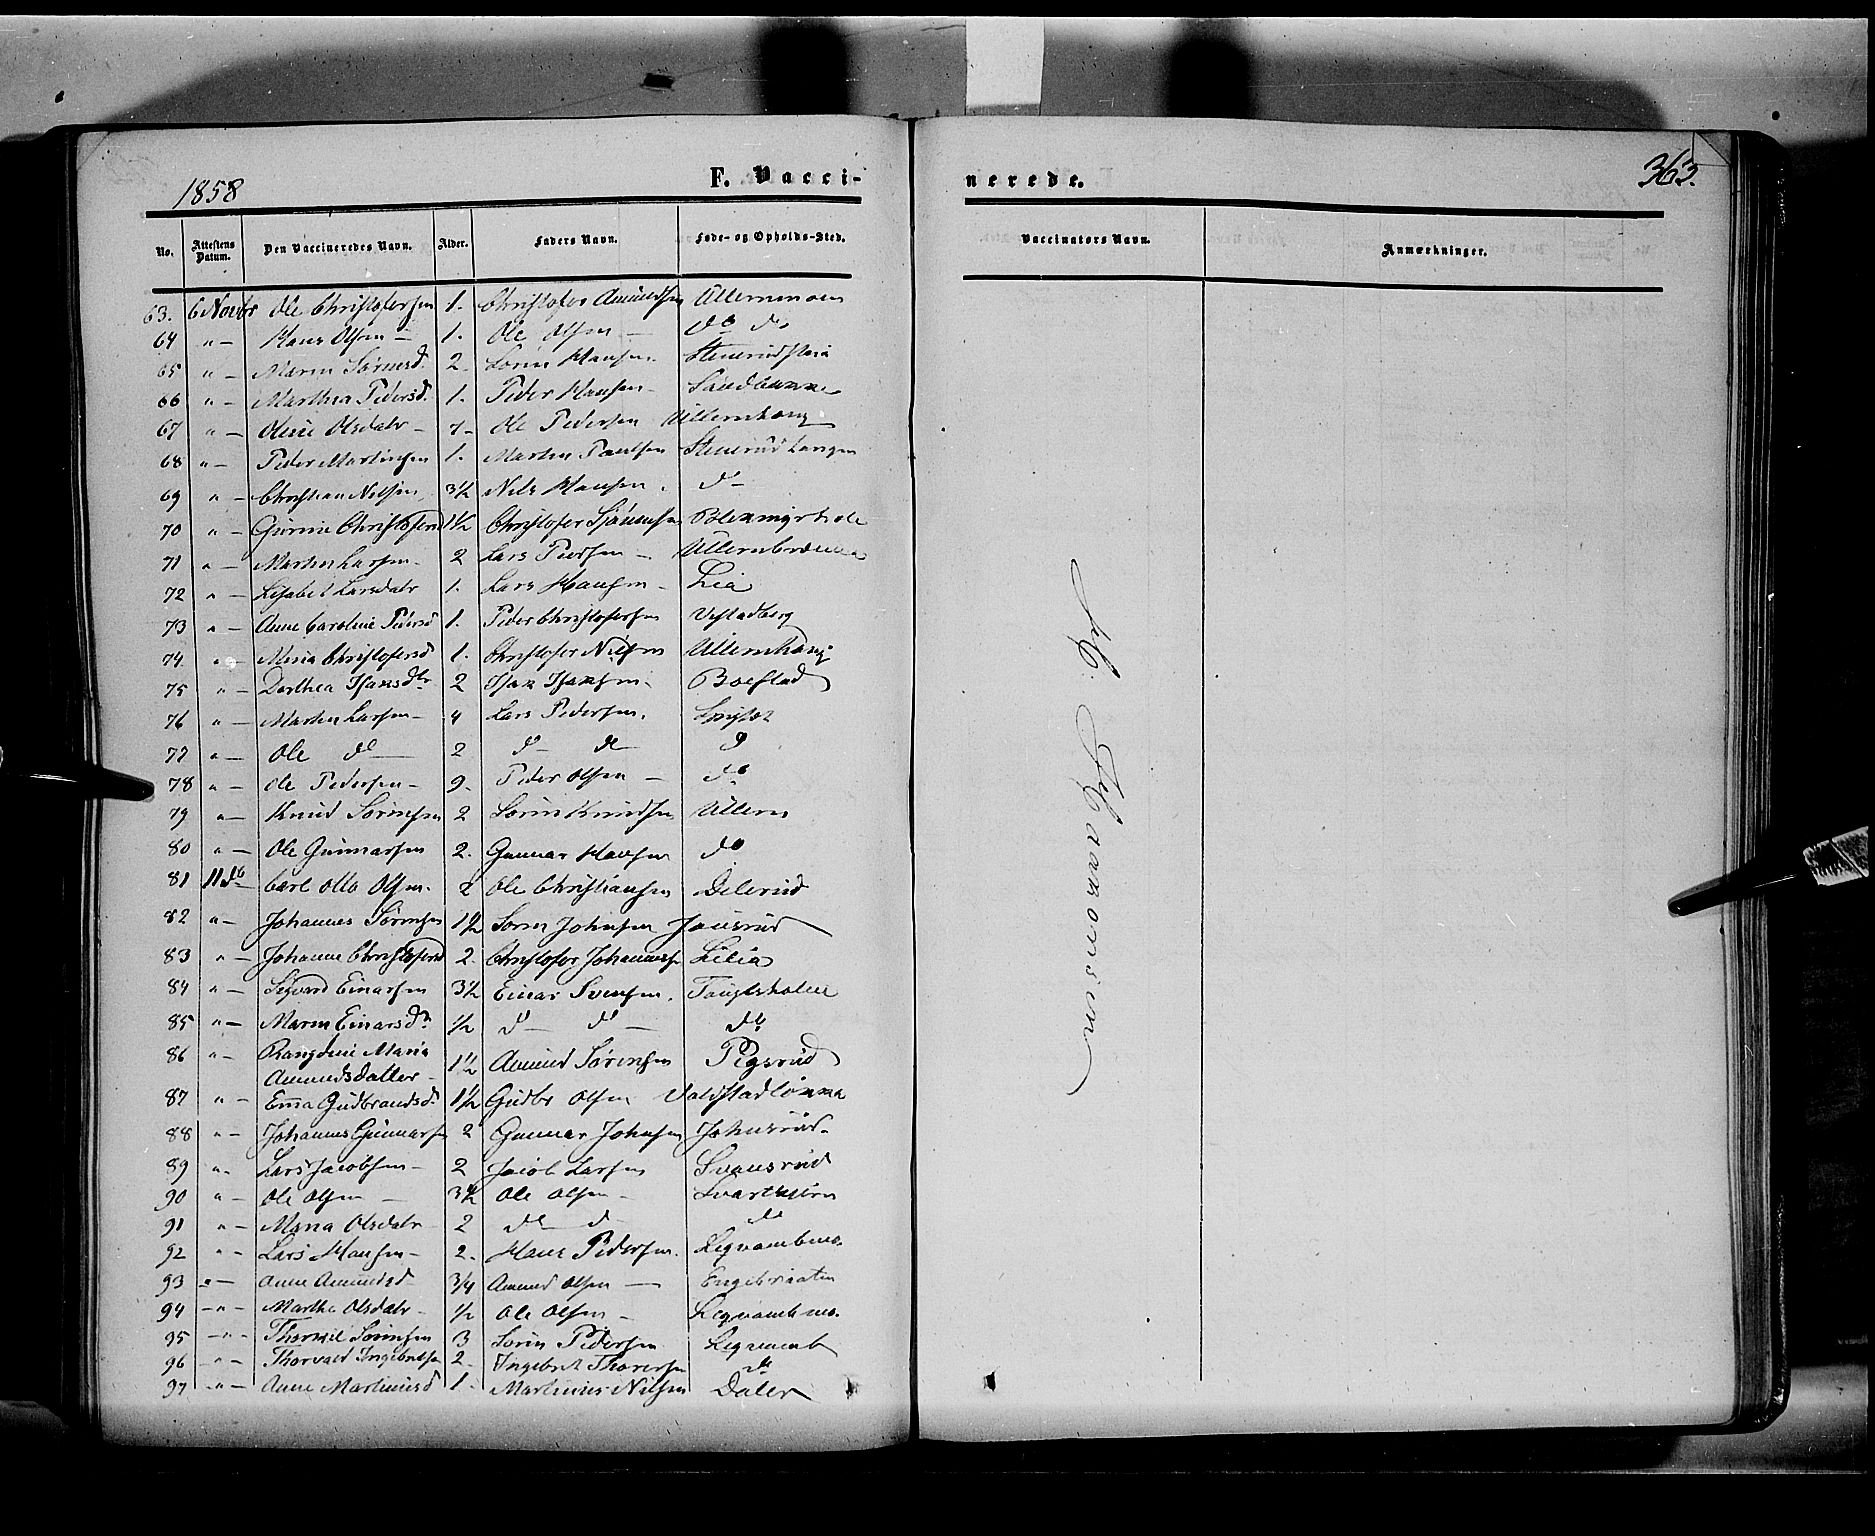 1858
F. Vacci-
nerede.
363.
No. Attestens Datum. Den Vaccineredes Navn. Alder. Faders Navn. Føde- og Opholds-Sted. Vaccinators Navn. Anmærkninger.
63. 6 Novbr Ole Christofersen 1. Christofer Amundsen Ullernmoen
64 " — Hans Olsen — 1. Ole Olsen — do do
65 " — Maren Sørensd. 2. Søren Hansen.
66 " — Marthea Pedersd. 1. Peder Hansen — Sandbakken
67 " — Oline Olsdatr — Ole Pedersen Ullernhang
68 " — Peder Martinsen 1. Martin Paulsen
69 " — Christian Nilsen 3½ Nils Hansen. do —
70 " — Christofersd 1½ Christofer
71 " — Martin Larsen 2 Lars Pedersen —
72 " — Lisabet Larsdatr 1. Lars Hansen — Lia
73 " — Anne Caroline Pedersd 1. Peder Christofersen Vestadberg
74. " — Maria Christofersd 1. Christofer Nilsen Ullernhang
75 " — Dorthea Isaksdtr 2 Isak Isaksen
76 " — Martin Larsen — 4 Lars Pedersen.
77 " — Ole do — 2 do — do — do
78 " — Ole Pedersen — 9. Peder Olsen — do
79 " — Knud Sørensen 2 Søren Knudsen Ullern
80 " — Ole Gunnarsen 2. Gunnar Hansen do
81 11 do Carl Otto Olsen. 2 Ole Christiansen Delerud
82 " — Johannes Sørensen 1½ Søren Johnsen Jonsrud
83 " — Johanne Christofersd 2. Christofer Johanness Lilia
84 " — Sigvard Einarsen 3½ Einar Svensen.
85 " — Maren Einarsdr ½ do — do — do
86 " — Rangdine Maria
Amundsdatter — 1½ Amund Sørensen Pigsrud
87 " — Emma Gudbrandsd. 1½ Gudbr Olsen
88 " — Johannes Gunnarsen 2 Gunnar Johnsen Johnsrud.
89 " — Lars Jacobsen — 2 Jacob Larsen Svensrud
90 " — Ole Olsen — 3½ Ole Olsen —
91 " — Maria Olsdatr 2 do — do — do
92 " — Lars Hansen — 2. Hans Pedersen. Legvambmo.
93 " — Anne Amundsd 3/4 Amund Olsen — Engebraaten
94 — " — Marthe Olsdatr — ½ Ole Olsen — Legvambmo.
95 — " — Sørensen 3 Søren Pedersen Legvamb
96 — " — Thorvald Ingebretsen 2. Ingebret Thoresen do
97 — " — Anne Martinusd 1. Martinus Nilsen Daler